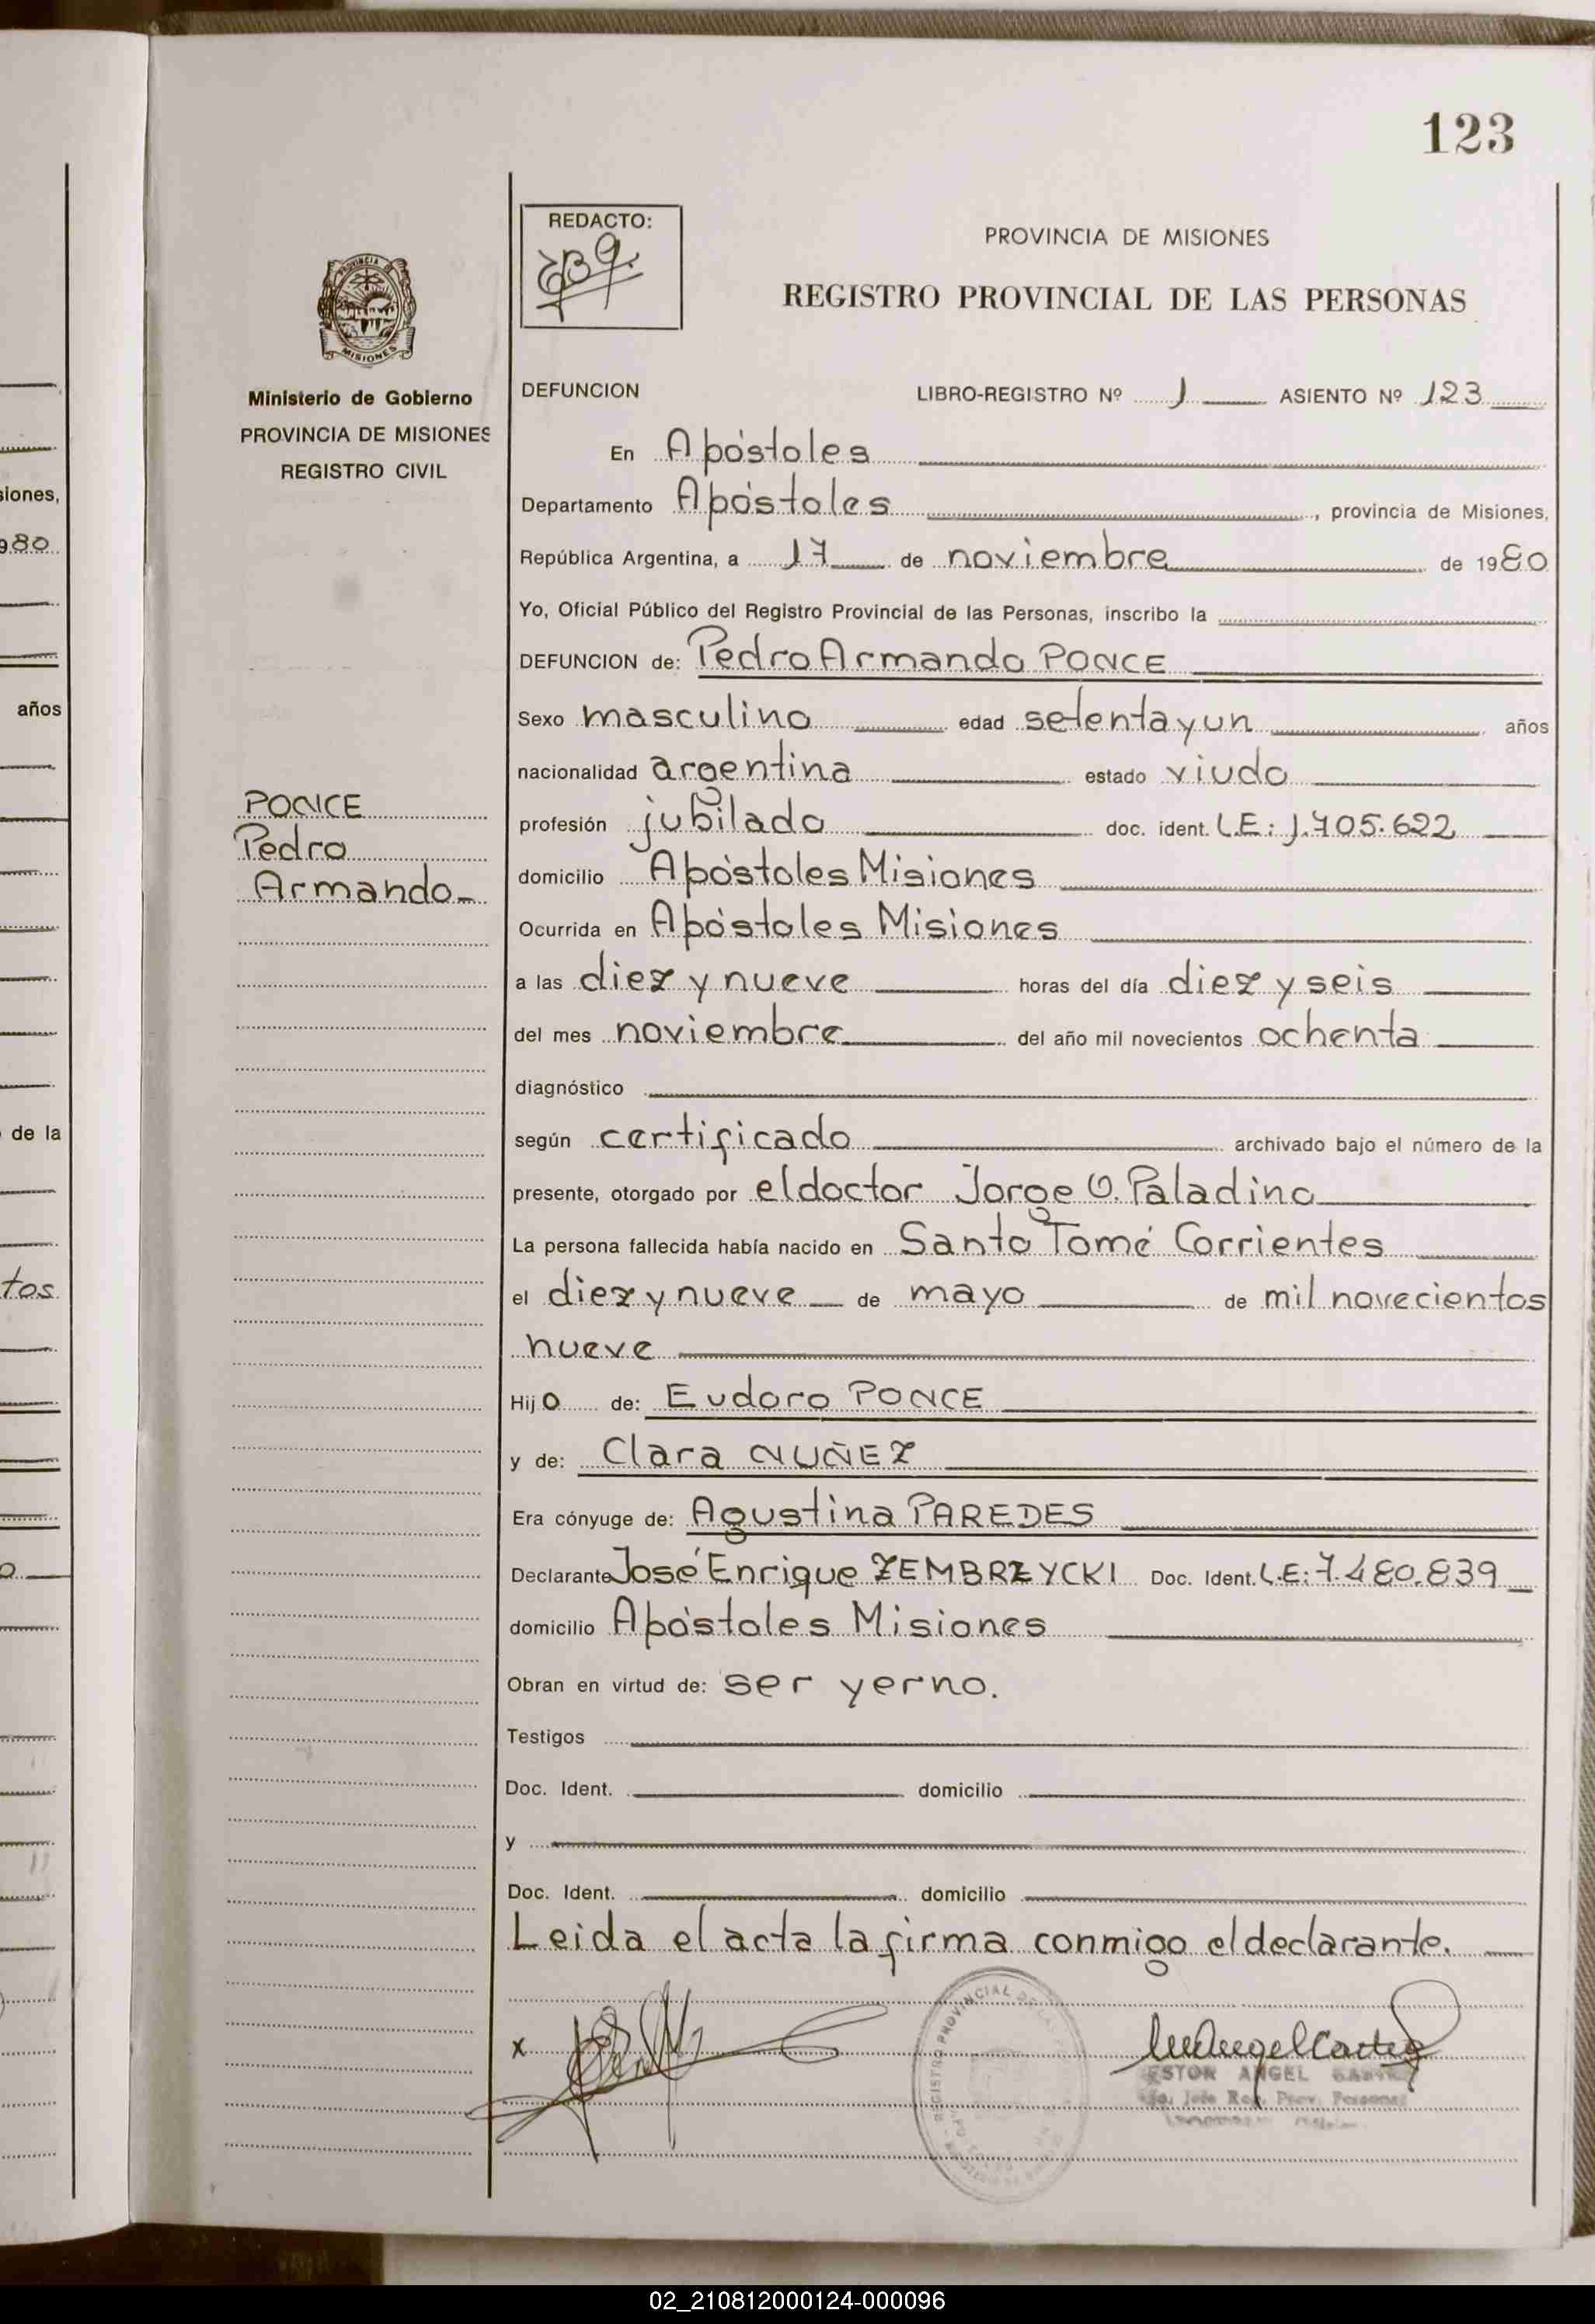 123
REDACTO:
PROVINCIA DE MISIONES
REGISTRO PROVINCIAL DE LAS PERSONAS
PROVINCIA DE
MISIONES
Ministerio de Gobierno
PROVINCIA DE MISIONES
REGISTRO CIVIL
DEFUNCION LIBRO-REGISTRO Nº 1 ASIENTO Nº 123
En Apóstoles
Departamento Apóstoles, provincia de Misiones,
República Argentina, a 17 de noviembre de 1980
Yo, Oficial Público del Registro Provincial de las Personas, inscribo la
DEFUNCION de: Pedro Armando PONCE
Sexo masculino edad setenta y un años
nacionalidad argentina estado viudo
PONCE
Pedro
Armando
profesión jubilado doc. ident. L.E: 1.705.622
domicilio Apóstoles Misiones
Ocurrida en Apóstoles Misiones
a las diez y nueve horas del día diez y seis
del mes noviembre del año mil novecientos ochenta
diagnóstico
según certificado archivado bajo el número de la
presente, otorgado por el doctor Jorge O. Paladino
La persona fallecida había nacido en Santo Tomé Corrientes
el diez y nueve de mayo de mil novecientos
nueve
Hijo de: Eudoro PONCE
y de: Clara NUÑEZ
Era cónyuge de: Agustina PAREDES
Declarante José Enrique ZEMBRZYCKI Doc. Ident. L.E: 7.480.839
domicilio Apóstoles Misiones
Obran en virtud de: ser yerno.
Testigos
Doc. Ident. domicilio
y
Doc. Ident. domicilio
Leida el acta la firma conmigo el declarante.
x
REGISTRO PROVINCIAL DE
ESTOR ANGEL
siones,
980
años
de la
tos
02_210812000124-000096